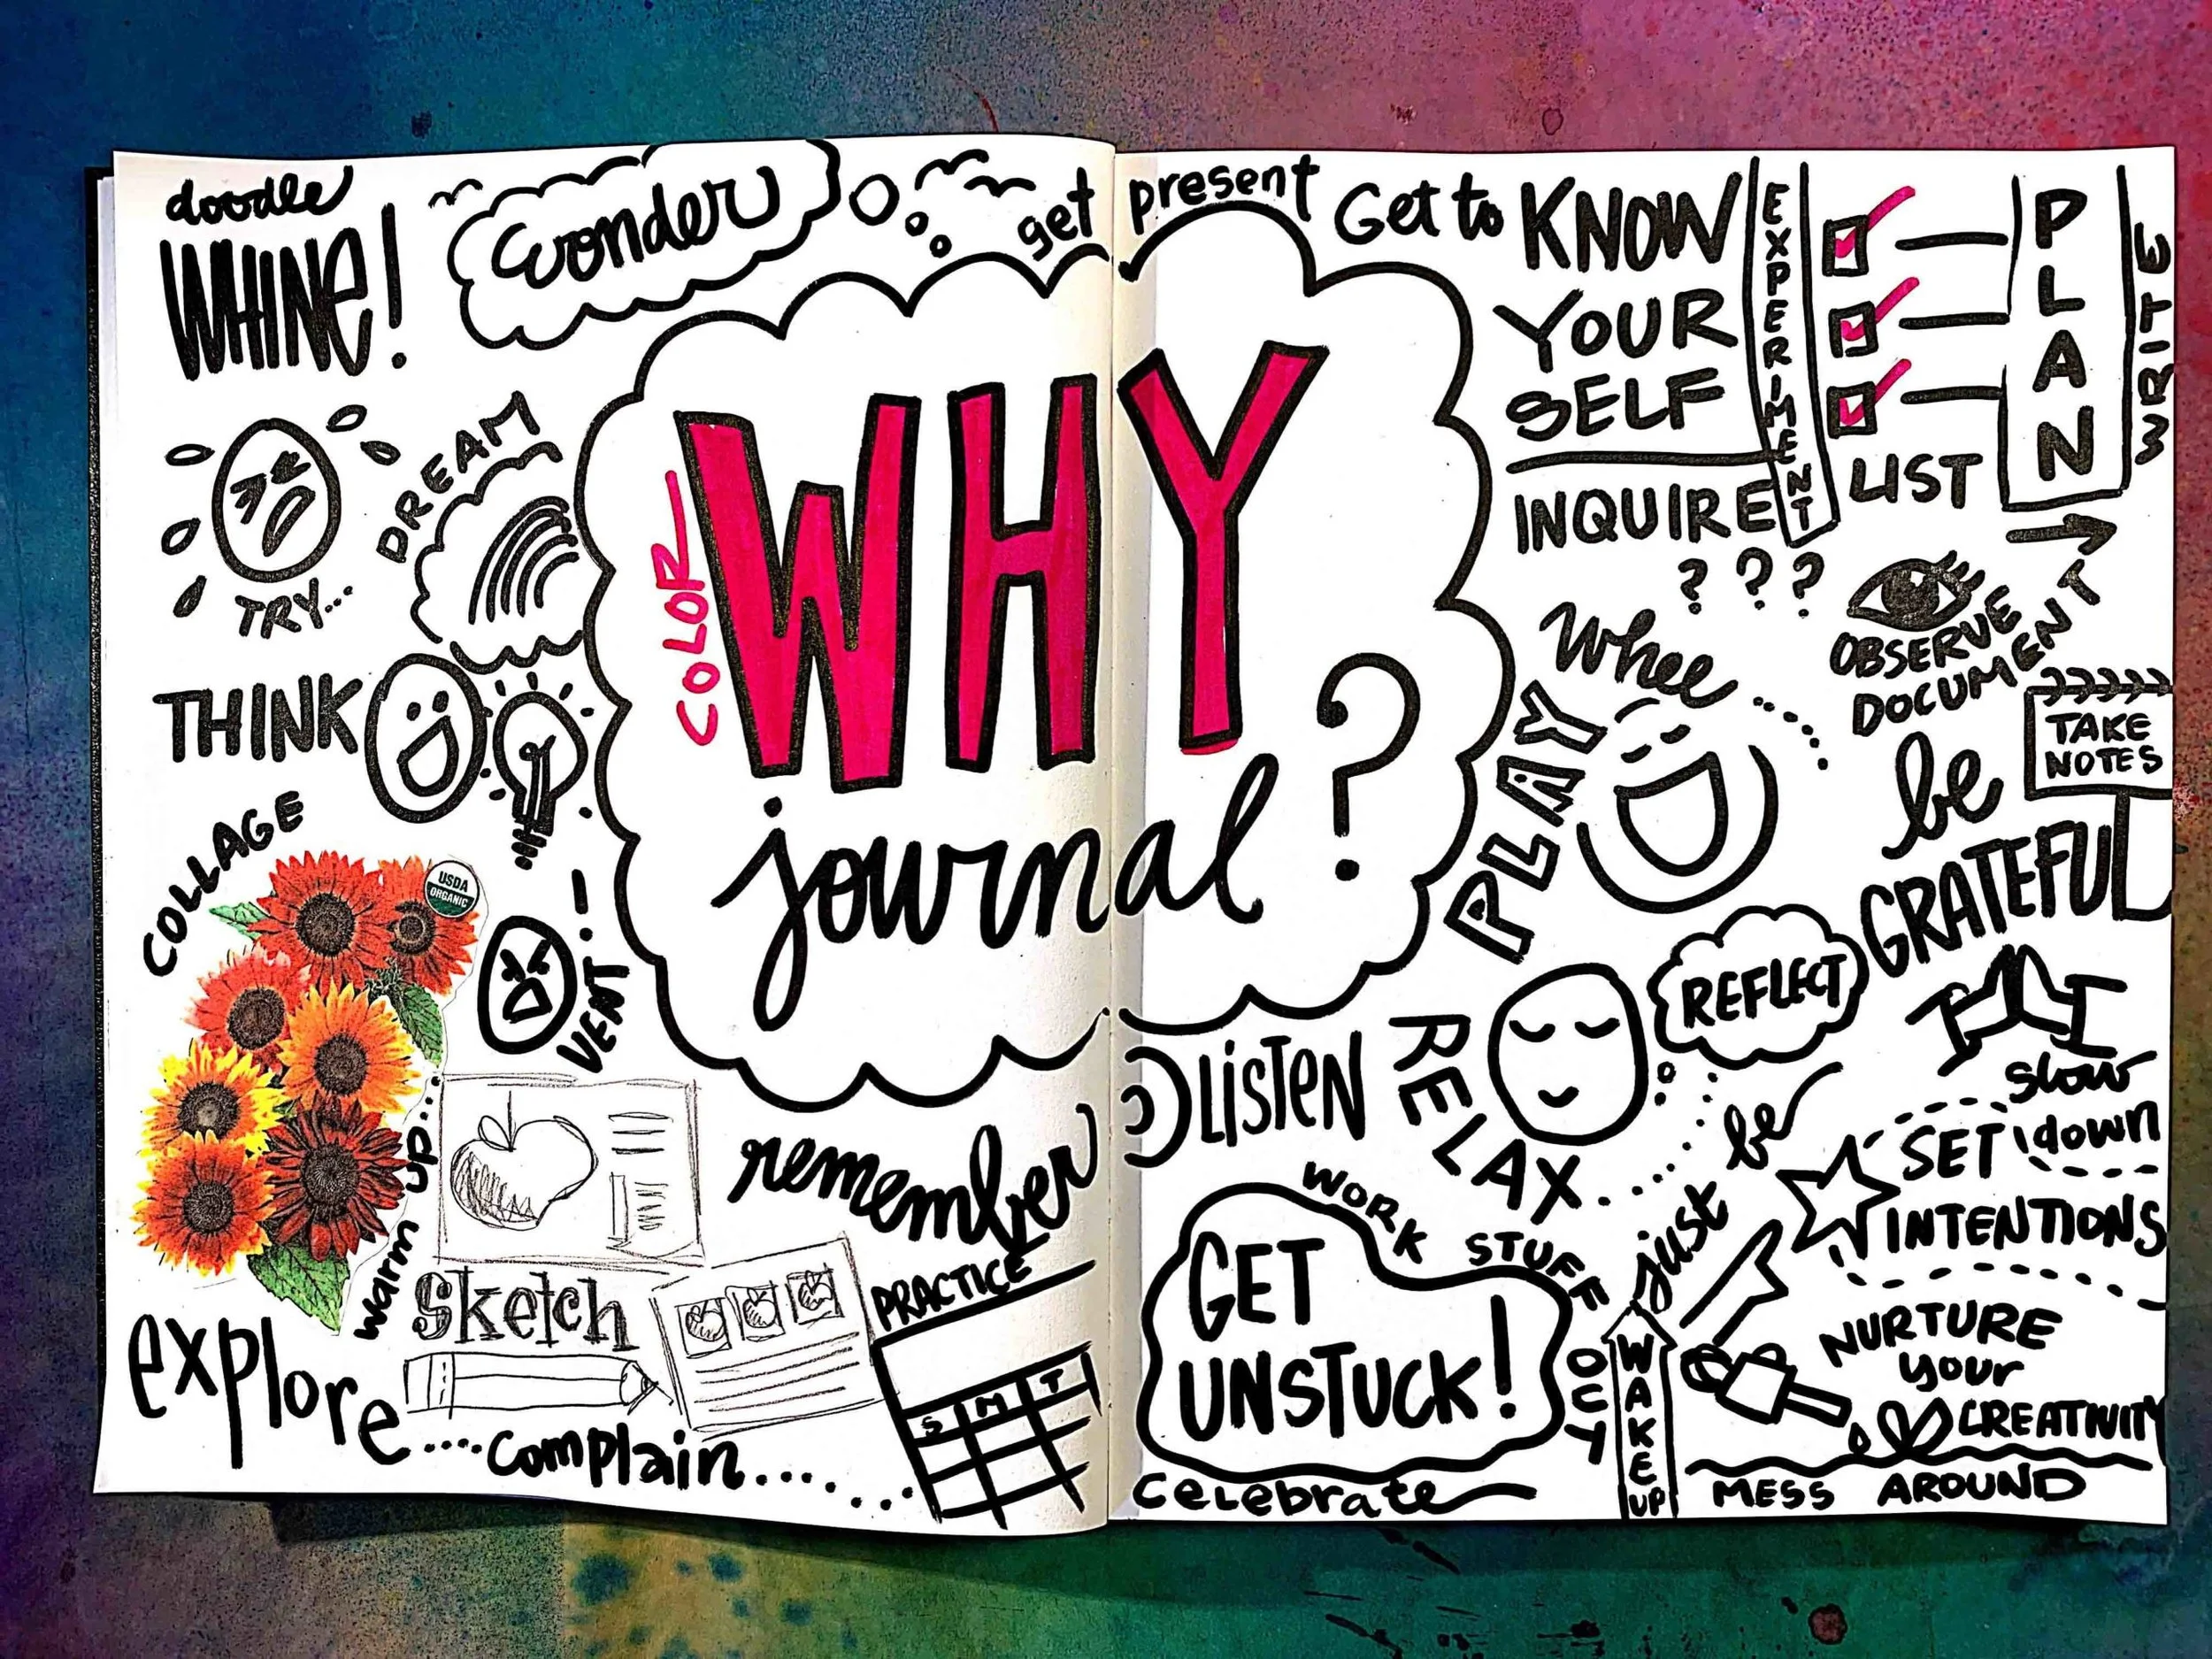 doodle
WHINE!
wonder
get present
Get to KNOW
YOUR
SELF
INQUIRE
? ? ?
EXPERIMENT
LIST
PLAN
WRITE
TRY...
DREAM
THINK
COLOR
WHY
journal?
whee....
PLAY
OBSERVE
DOCUMENT
TAKE
NOTES
be
GRATEFUL
COLLAGE
USDA
ORGANIC
VENT!
REFLECT
RELAX....
LISTEN
remember
just be
slow
down
SET
INTENTIONS
warm up...
sketch
explore....complain.....
PRACTICE
S M T
WORK STUFF
GET
UNSTUCK!
celebrate
WAKE UP
NURTURE
your
CREATIVITY
MESS AROUND